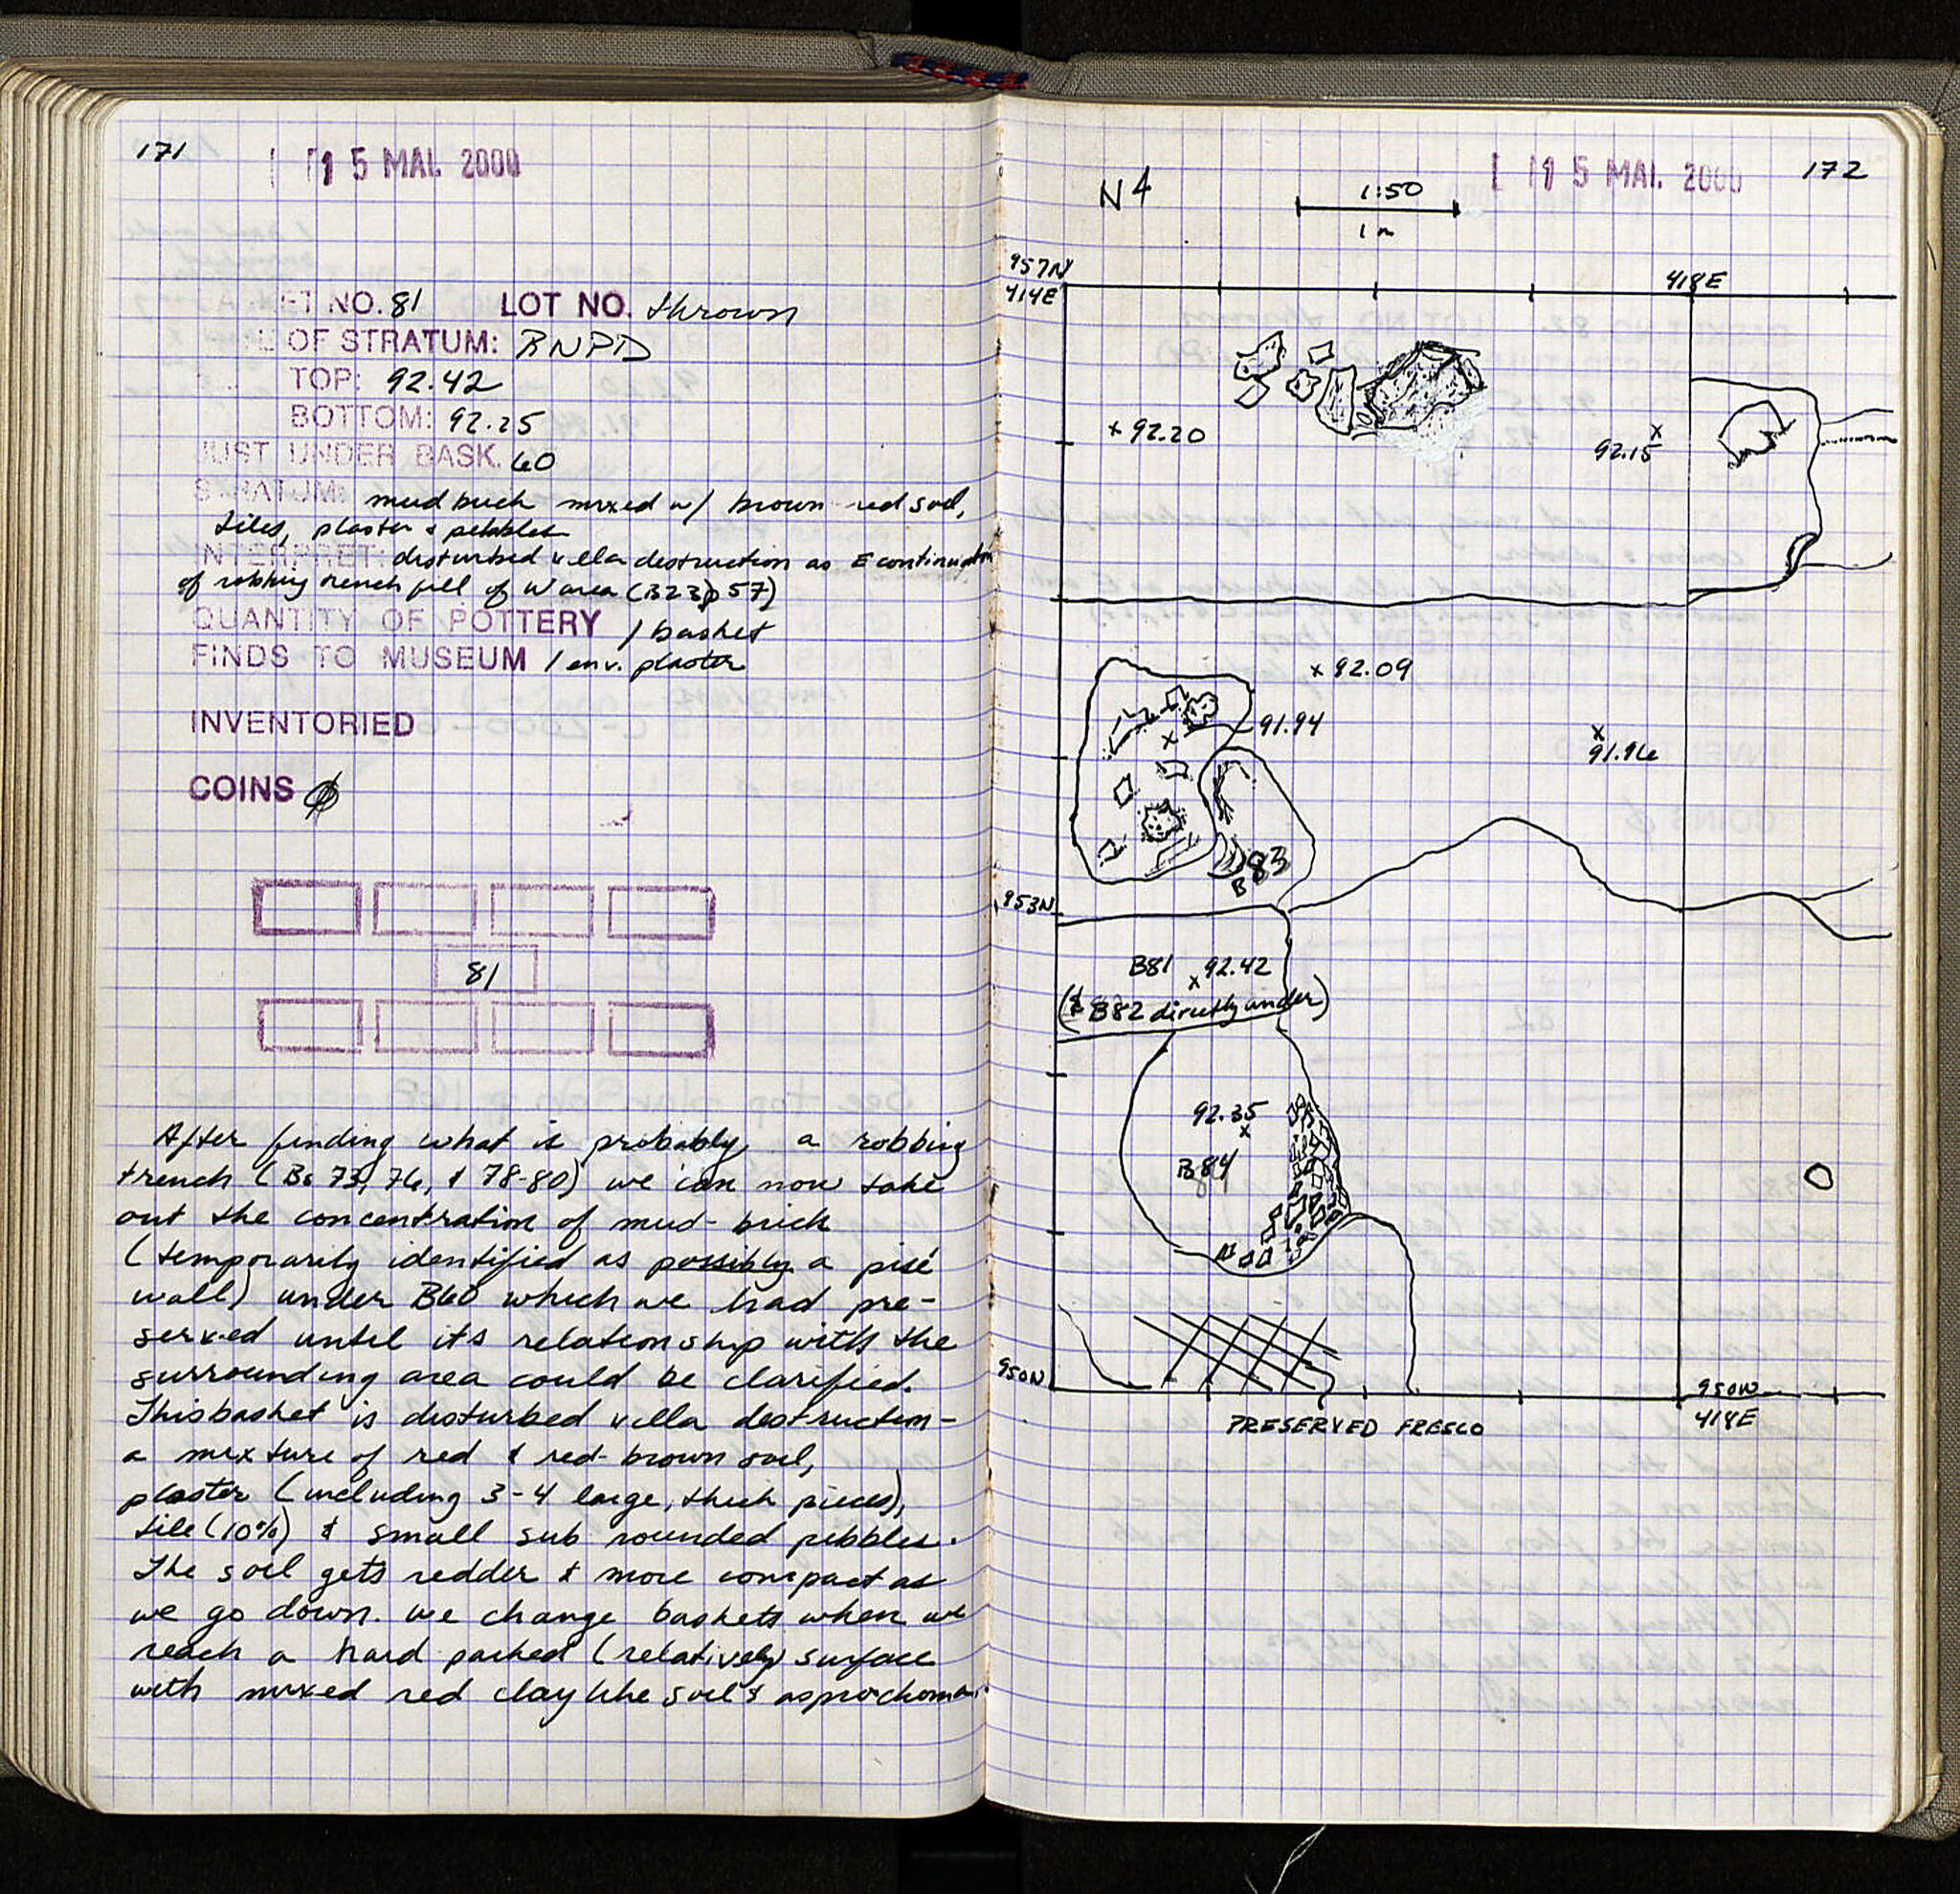 171
15 MAI. 2000
ET NO. 81 LOT NO. thrown
OF STRATUM: RNPD
TOP: 92.42
BOTTOM: 92.25
JUST UNDER BASK. 60
STRATUM: mud brick mixed w/ brown-red soil,
tiles, plaster & pebbles
INTERPRET: disturbed villa destruction as E continuation
of robbing trench fill of W area (B23, p57)
QUANTITY OF POTTERY 1 basket
FINDS TO MUSEUM 1 env. plaster
INVENTORIED
COINS ∅
81
After finding what is probably a robbing
trench (Bs 73, 76, & 78-80) we can now take
out the concentration of mud-brick
(temporarily identified as possibly a pisé
wall) under B60 which we had pre-
served until its relationship with the
surrounding area could be clarified.
This basket is disturbed villa destruction-
a mixture of red & red-brown soil,
plaster (including 3-4 large, thick pieces),
tile (10%) & small sub rounded pebbles.
The soil gets redder & more compact as
we go down. we change baskets when we
reach a hard packed (relatively) surface
with mixed red clay like soil & asprochoma.
15 MAI. 2000 172
N4 1:50
1 m
957N
414E
418E
92.20
92.15
92.09
91.94
91.96
B83
953N
B81 92.42
(& B82 directly under)
92.35
B84
950N
950N
418E
PRESERVED FRESCO